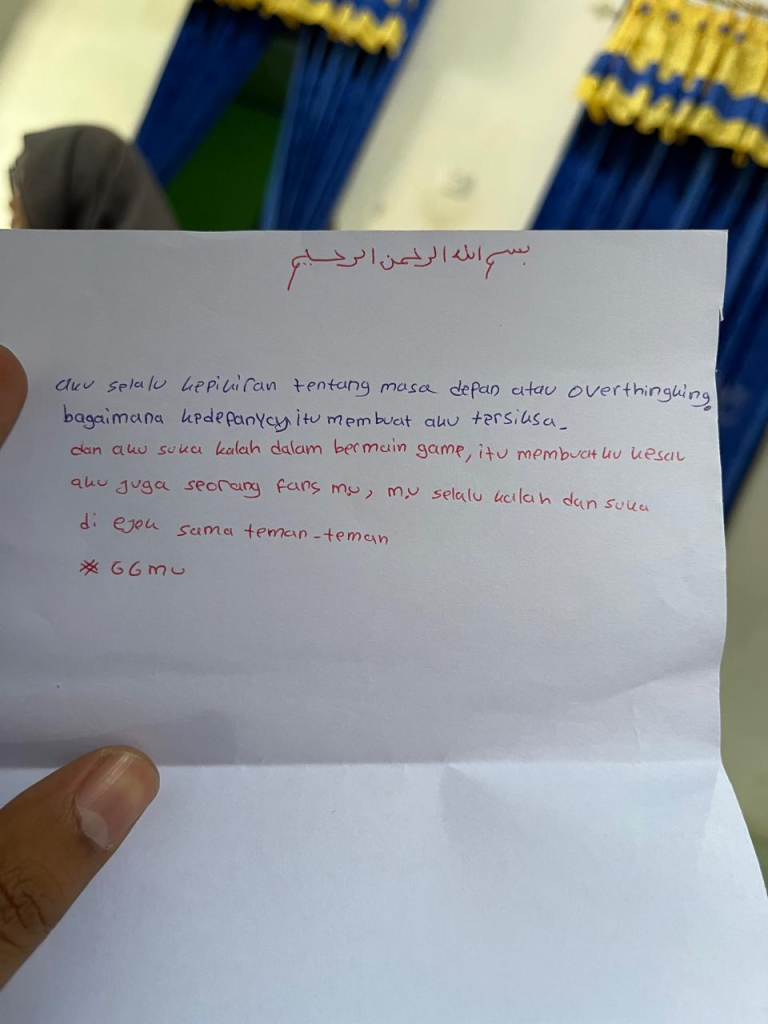 بسم الله الرحمن الرحيم
aku selalu kepikiran tentang masa depan atau overthingking.
bagaimana kedepanya, itu membuat aku tersiksa.
dan aku suka kalah dalam bermain game, itu membuatku kesal
aku juga seorang fans mu, mu selalu kalah dan suka
di ejek sama teman-teman
* GGmu